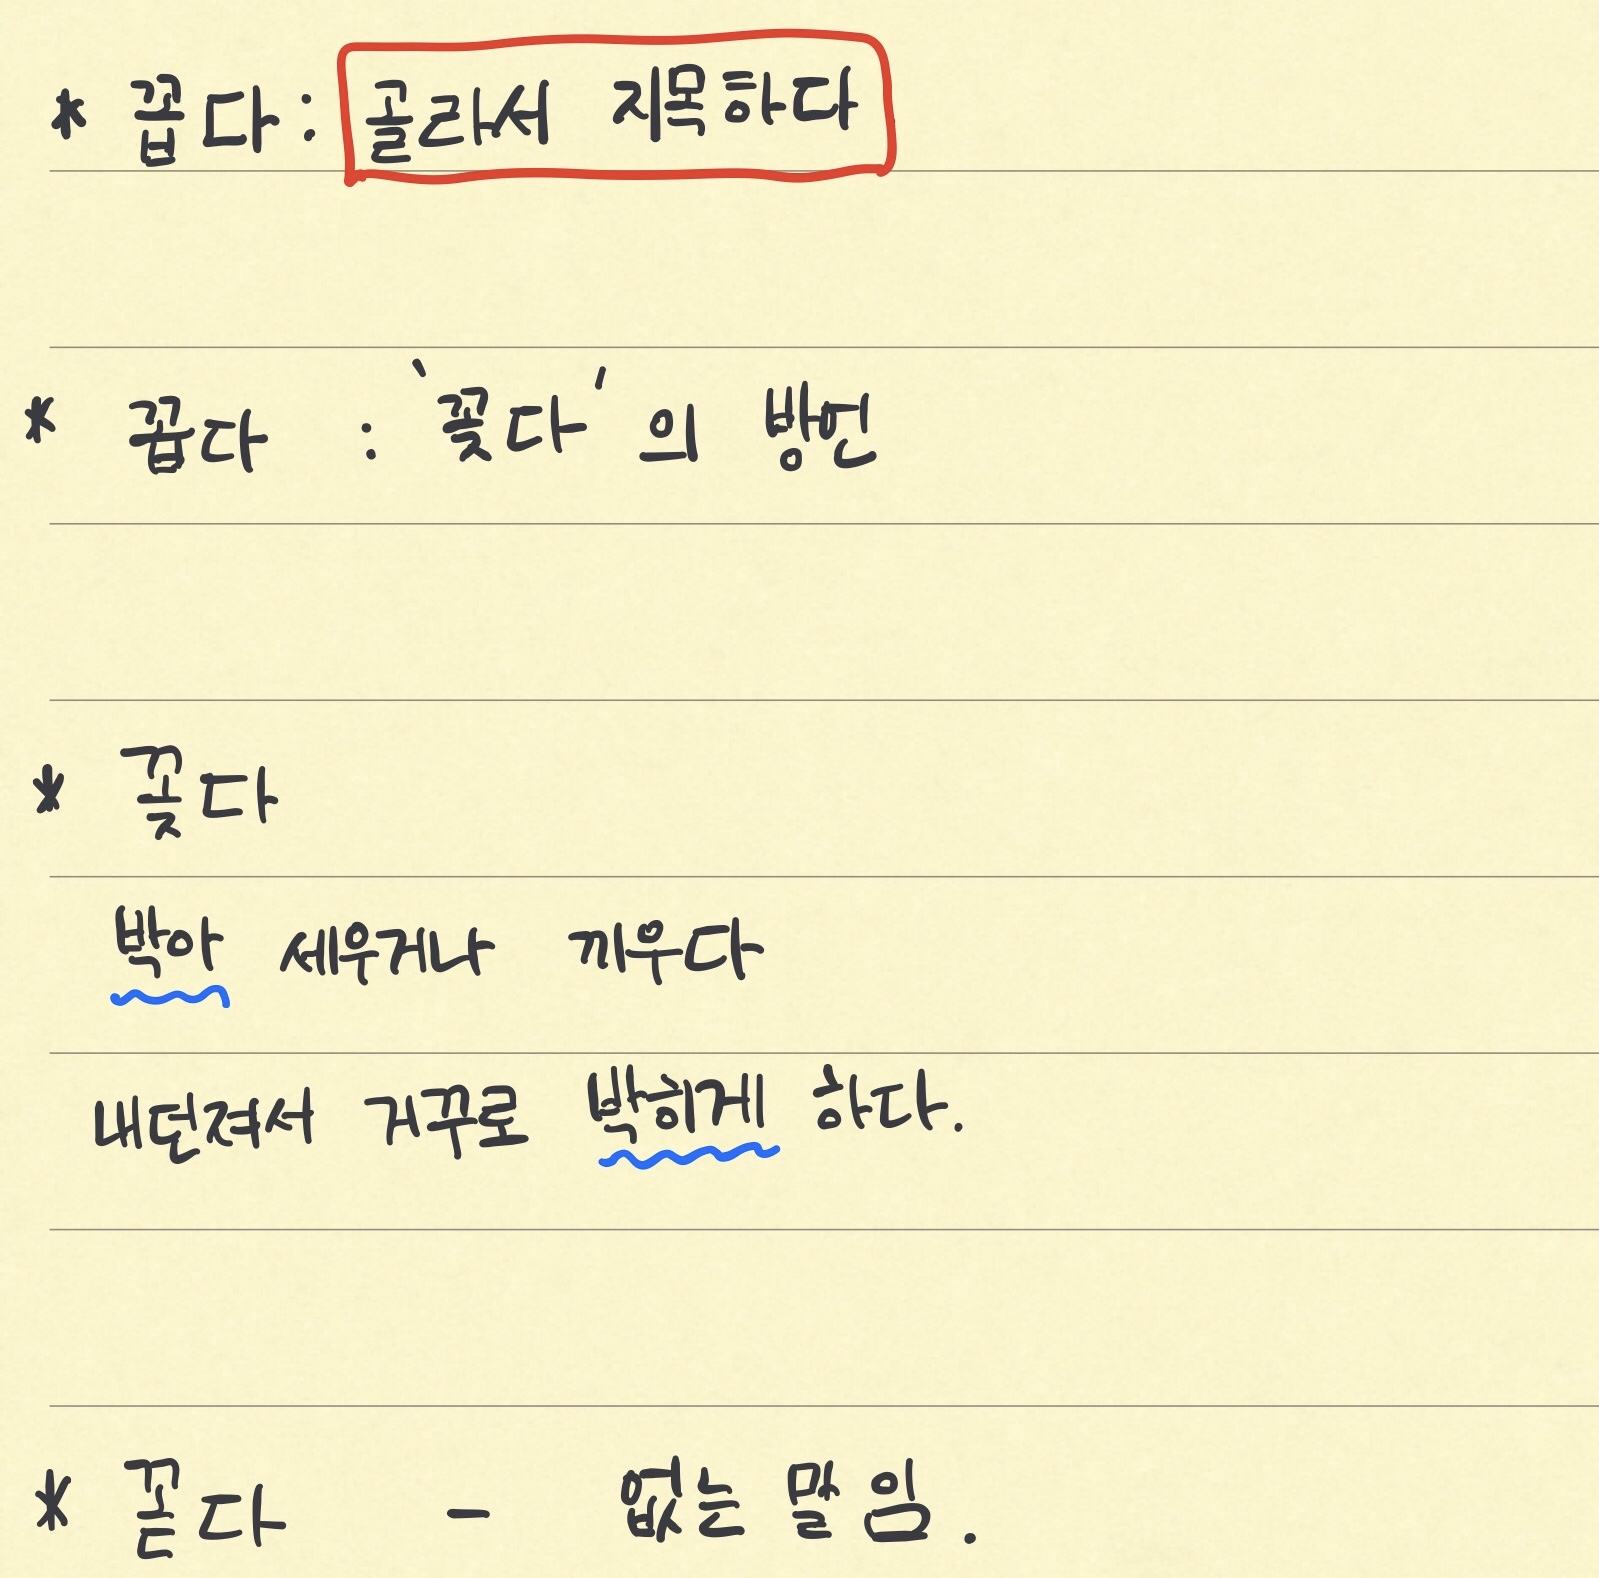 * 꼽다: 골라서 지목하다
* 꼽다 : '꽂다'의 방언
* 꽂다
박아 세우거나 끼우다
내던져서 거꾸로 박히게 하다.
* 꼳다 - 없는 말임.